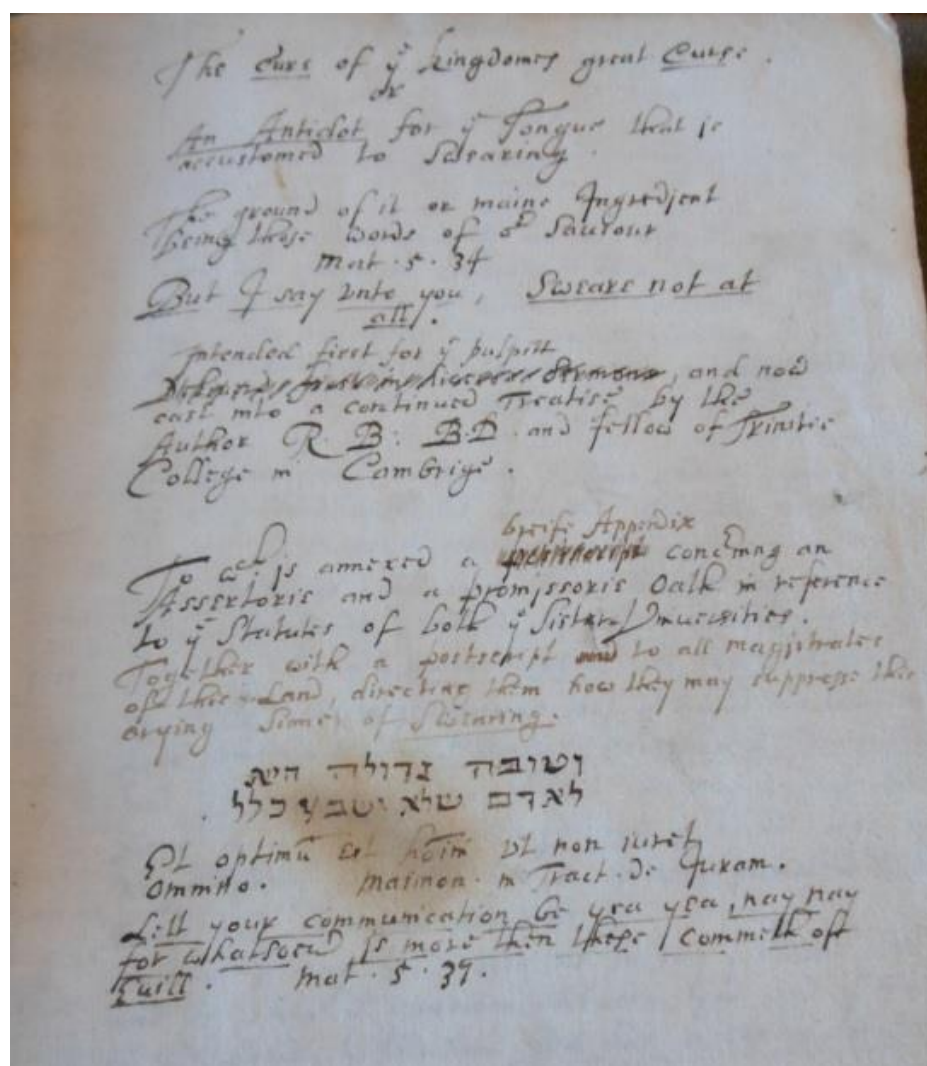 The Cure of yͤ Kingdomes great Curse .
or
An Antidot for yͤ Tongue that is
accustomed to Swearing .
The ground of it or maine Ingredient
Being those words of oʳ Saviour
Mat . 5 . 34
But I say vnto you , Sweare not at
all .
Intended first for yͤ pulpitt
first in Sermons , and now
cast into a continued Treatise by the
Author R . B : B.D . and fellow of Trinitie
College in Cambrige .
breife Appendix
To wᶜʰ is annexed a postscript concerning an
Assertorie and a promissorie Oath in reference
to yͤ Statutes of both yͤ Sister Vniuersities .
Together with a postscript and to all magistrates
of this Land , directing them how they may suppresse this
crying Sinne of Swearing .
וטובה גדולה היא
לאדם שלא ישבע כלל .
Et optimū est hoīm vt non iuret
omnino . Maimon . in Tract . de Juram .
Lett your communication be yea yea , nay nay
for whatsoeuʳ is more then these / commeth off
Euill . Mat . 5 . 37 .